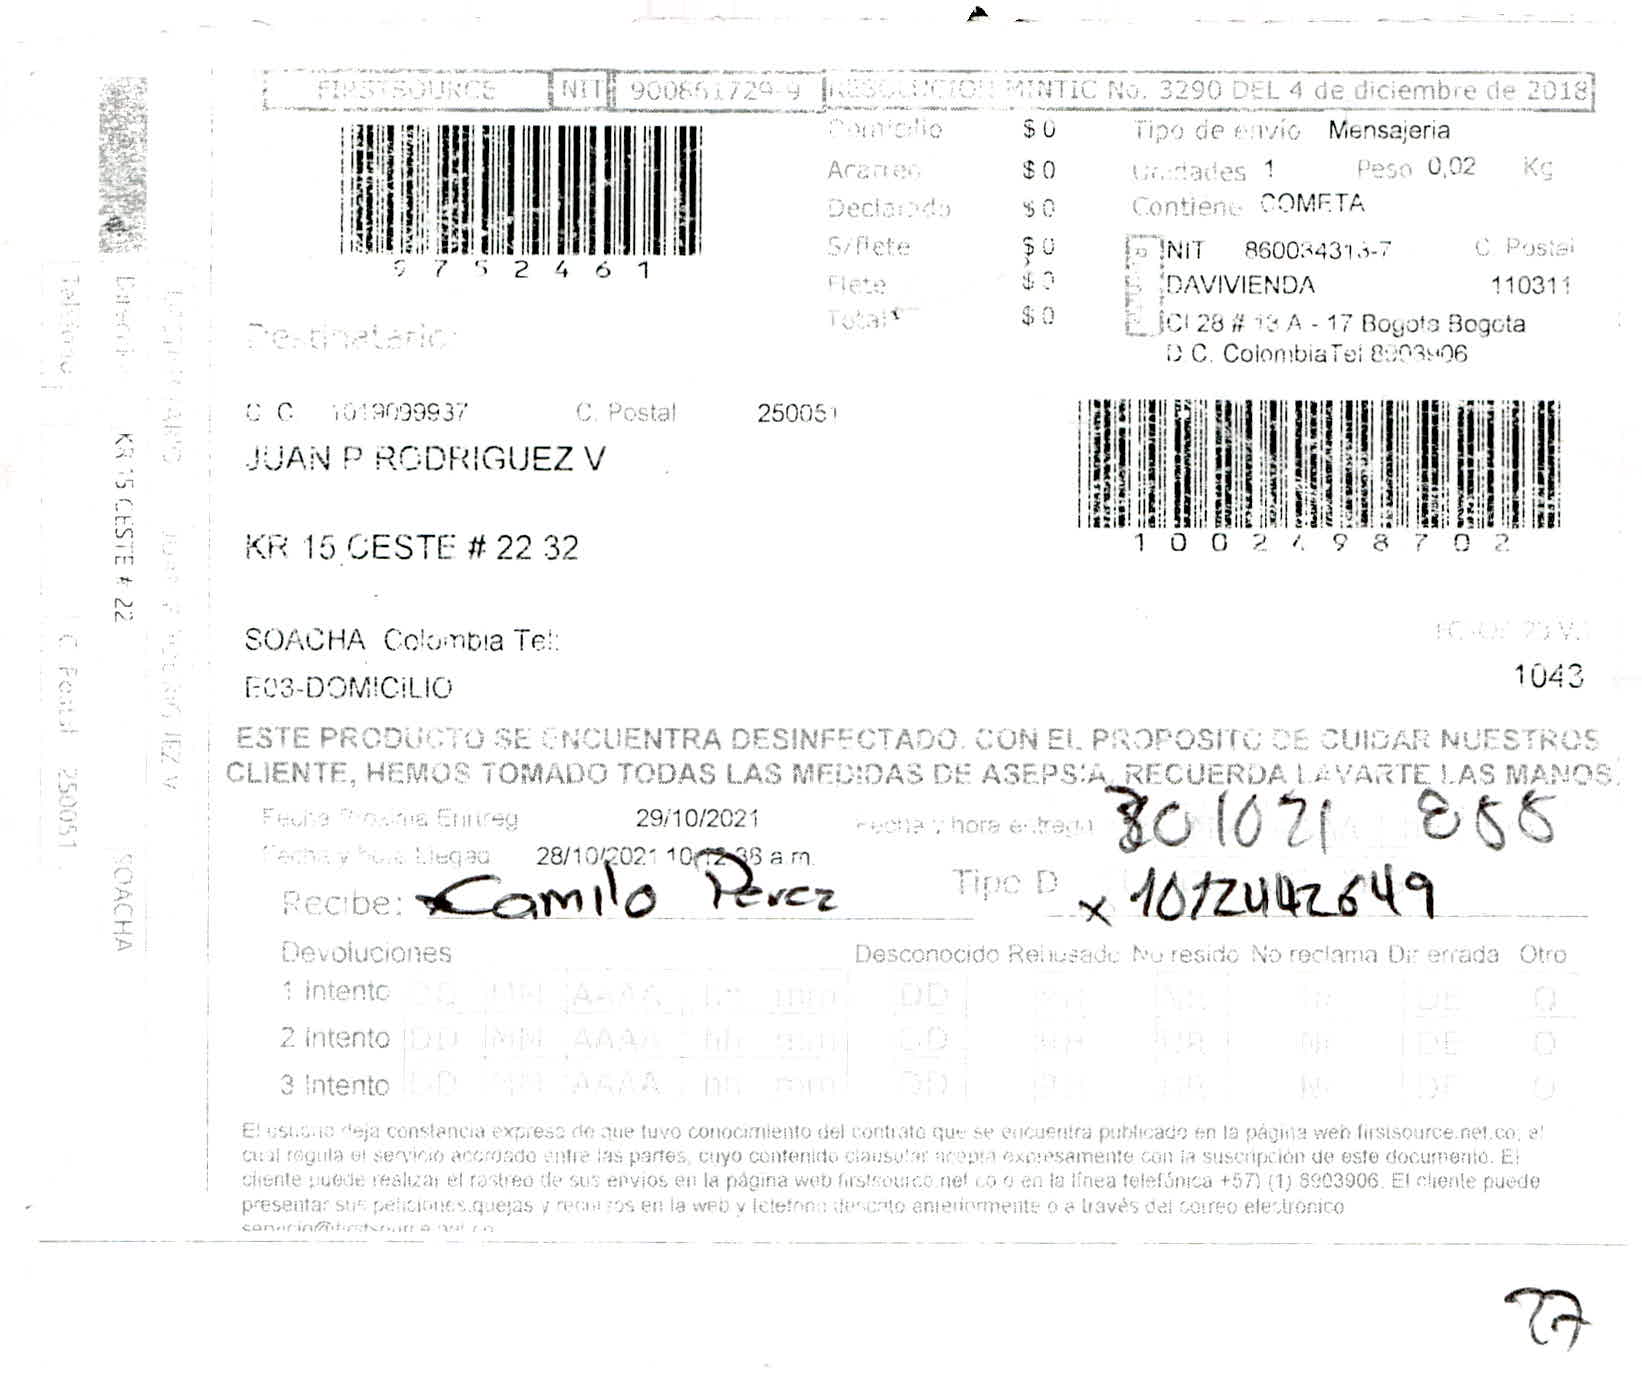 FIRSTSOURCE NIT 900861729-9 RESOLUCION MINTIC No. 3290 DEL 4 de diciembre de 2018
9752461
Domicilio $ 0
Acarreo $ 0
Declarado $ 0
S/flete $ 0
Flete $ 0
Total $ 0
Tipo de envío Mensajeria
Unidades 1 Peso 0,02 Kg
Contiene COMETA
NIT 860034313-7 C. Postal
DAVIVIENDA 110311
Cl 28 # 13 A - 17 Bogota Bogota
D.C. Colombia Tel 8903906
Destinatario:
C C 1019099937 C. Postal 250051
JUAN P RODRIGUEZ V
1002498702
KR 15 OESTE # 22 32
SOACHA Colombia Tel:
E03-DOMICILIO
1043
ESTE PRODUCTO SE ENCUENTRA DESINFECTADO. CON EL PROPOSITO DE CUIDAR NUESTROS
CLIENTE, HEMOS TOMADO TODAS LAS MEDIDAS DE ASEPSIA, RECUERDA LAVARTE LAS MANOS.
Fecha Proxima Entreg 29/10/2021 Fecha y hora entrega 301021 855
Fecha y hora Llegad 28/10/2021 10:12:38 a.m.
Recibe: x Camilo Perez Tipo D x 1012442649
Devoluciones Desconocido Rehusado No resido No reclama Dir errada Otro
1 Intento DD MM AAAA hh mm DD RH NR NR DE O
2 Intento DD MM AAAA hh mm DD RH NR NR DE O
3 Intento DD MM AAAA hh mm DD RH NR NR DE O
El usuario deja constancia expresa de que tuvo conocimiento del contrato que se encuentra publicado en la página web firstsource.net.co; el
cual regula el servicio accrdado entre las partes, cuyo contenido clausular acepta expresamente con la suscripción de este documento. El
cliente puede realizar el rastreo de sus envios en la página web firstsource.net.co o en la línea telefónica +57) (1) 8903906. El cliente puede
presentar sus peticiones,quejas y recursos en la web y telefono descrito anteriormente o a través del correo electronico
servicio@firstsource.net.co
Telefono C Postal 250051
Direccion KR 15 OESTE # 22 SOACHA
DESTINATARIO JUAN P RODRIGUEZ V
27